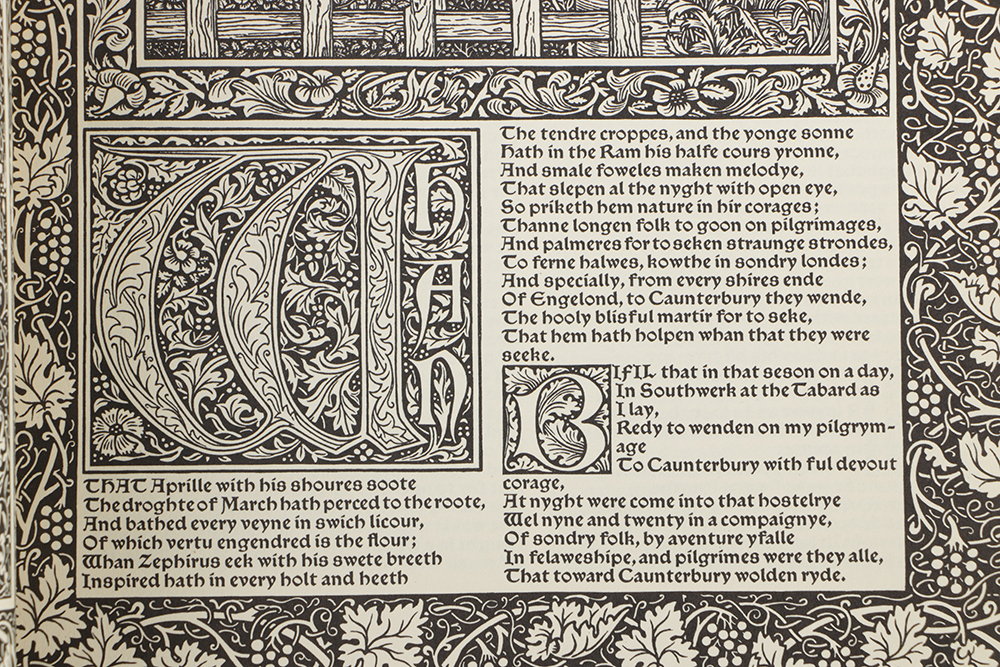 Whan
THAT Aprille with his shoures soote
The droghte of March hath perced to the roote,
And bathed every veyne in swich licour,
Of which vertu engendred is the flour;
Whan Zephirus eek with his swete breeth
Inspired hath in every holt and heeth
The tendre croppes, and the yonge sonne
Hath in the Ram his halfe cours yronne,
And smale foweles maken melodye,
That slepen al the nyght with open eye,
So priketh hem nature in hir corages;
Thanne longen folk to goon on pilgrimages,
And palmeres for to seken straunge strondes,
To ferne halwes, kowthe in sondry londes;
And specially, from every shires ende
Of Engelond, to Caunterbury they wende,
The hooly blisful martir for to seke,
That hem hath holpen whan that they were
seeke.
BIFIL that in that seson on a day,
In Southwerk at the Tabard as
I lay,
Redy to wenden on my pilgrym-
age
To Caunterbury with ful devout
corage,
At nyght were come into that hostelrye
Wel nyne and twenty in a compaignye,
Of sondry folk, by aventure yfalle
In felaweshipe, and pilgrimes were they alle,
That toward Caunterbury wolden ryde.